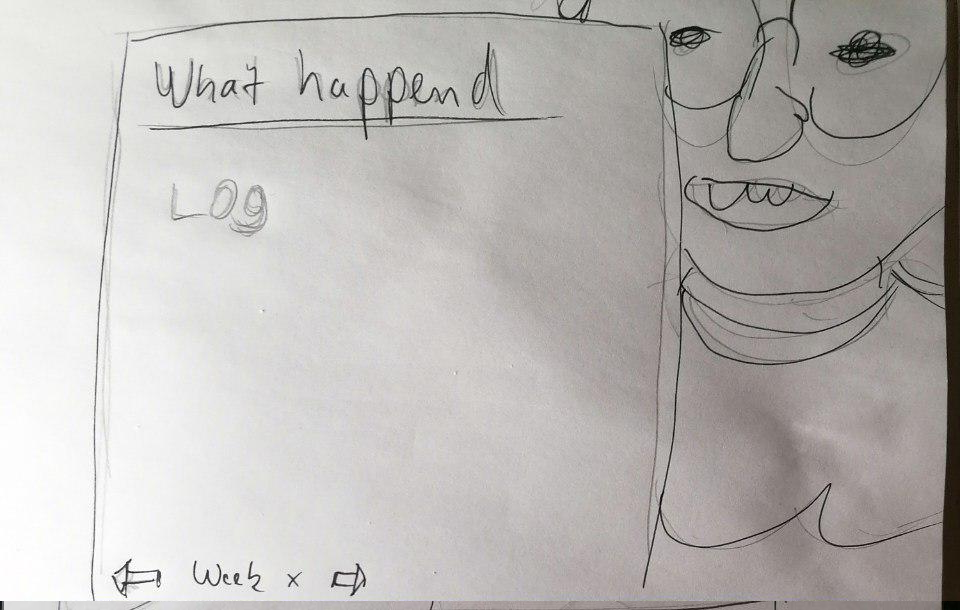 What happend
Log
Week x